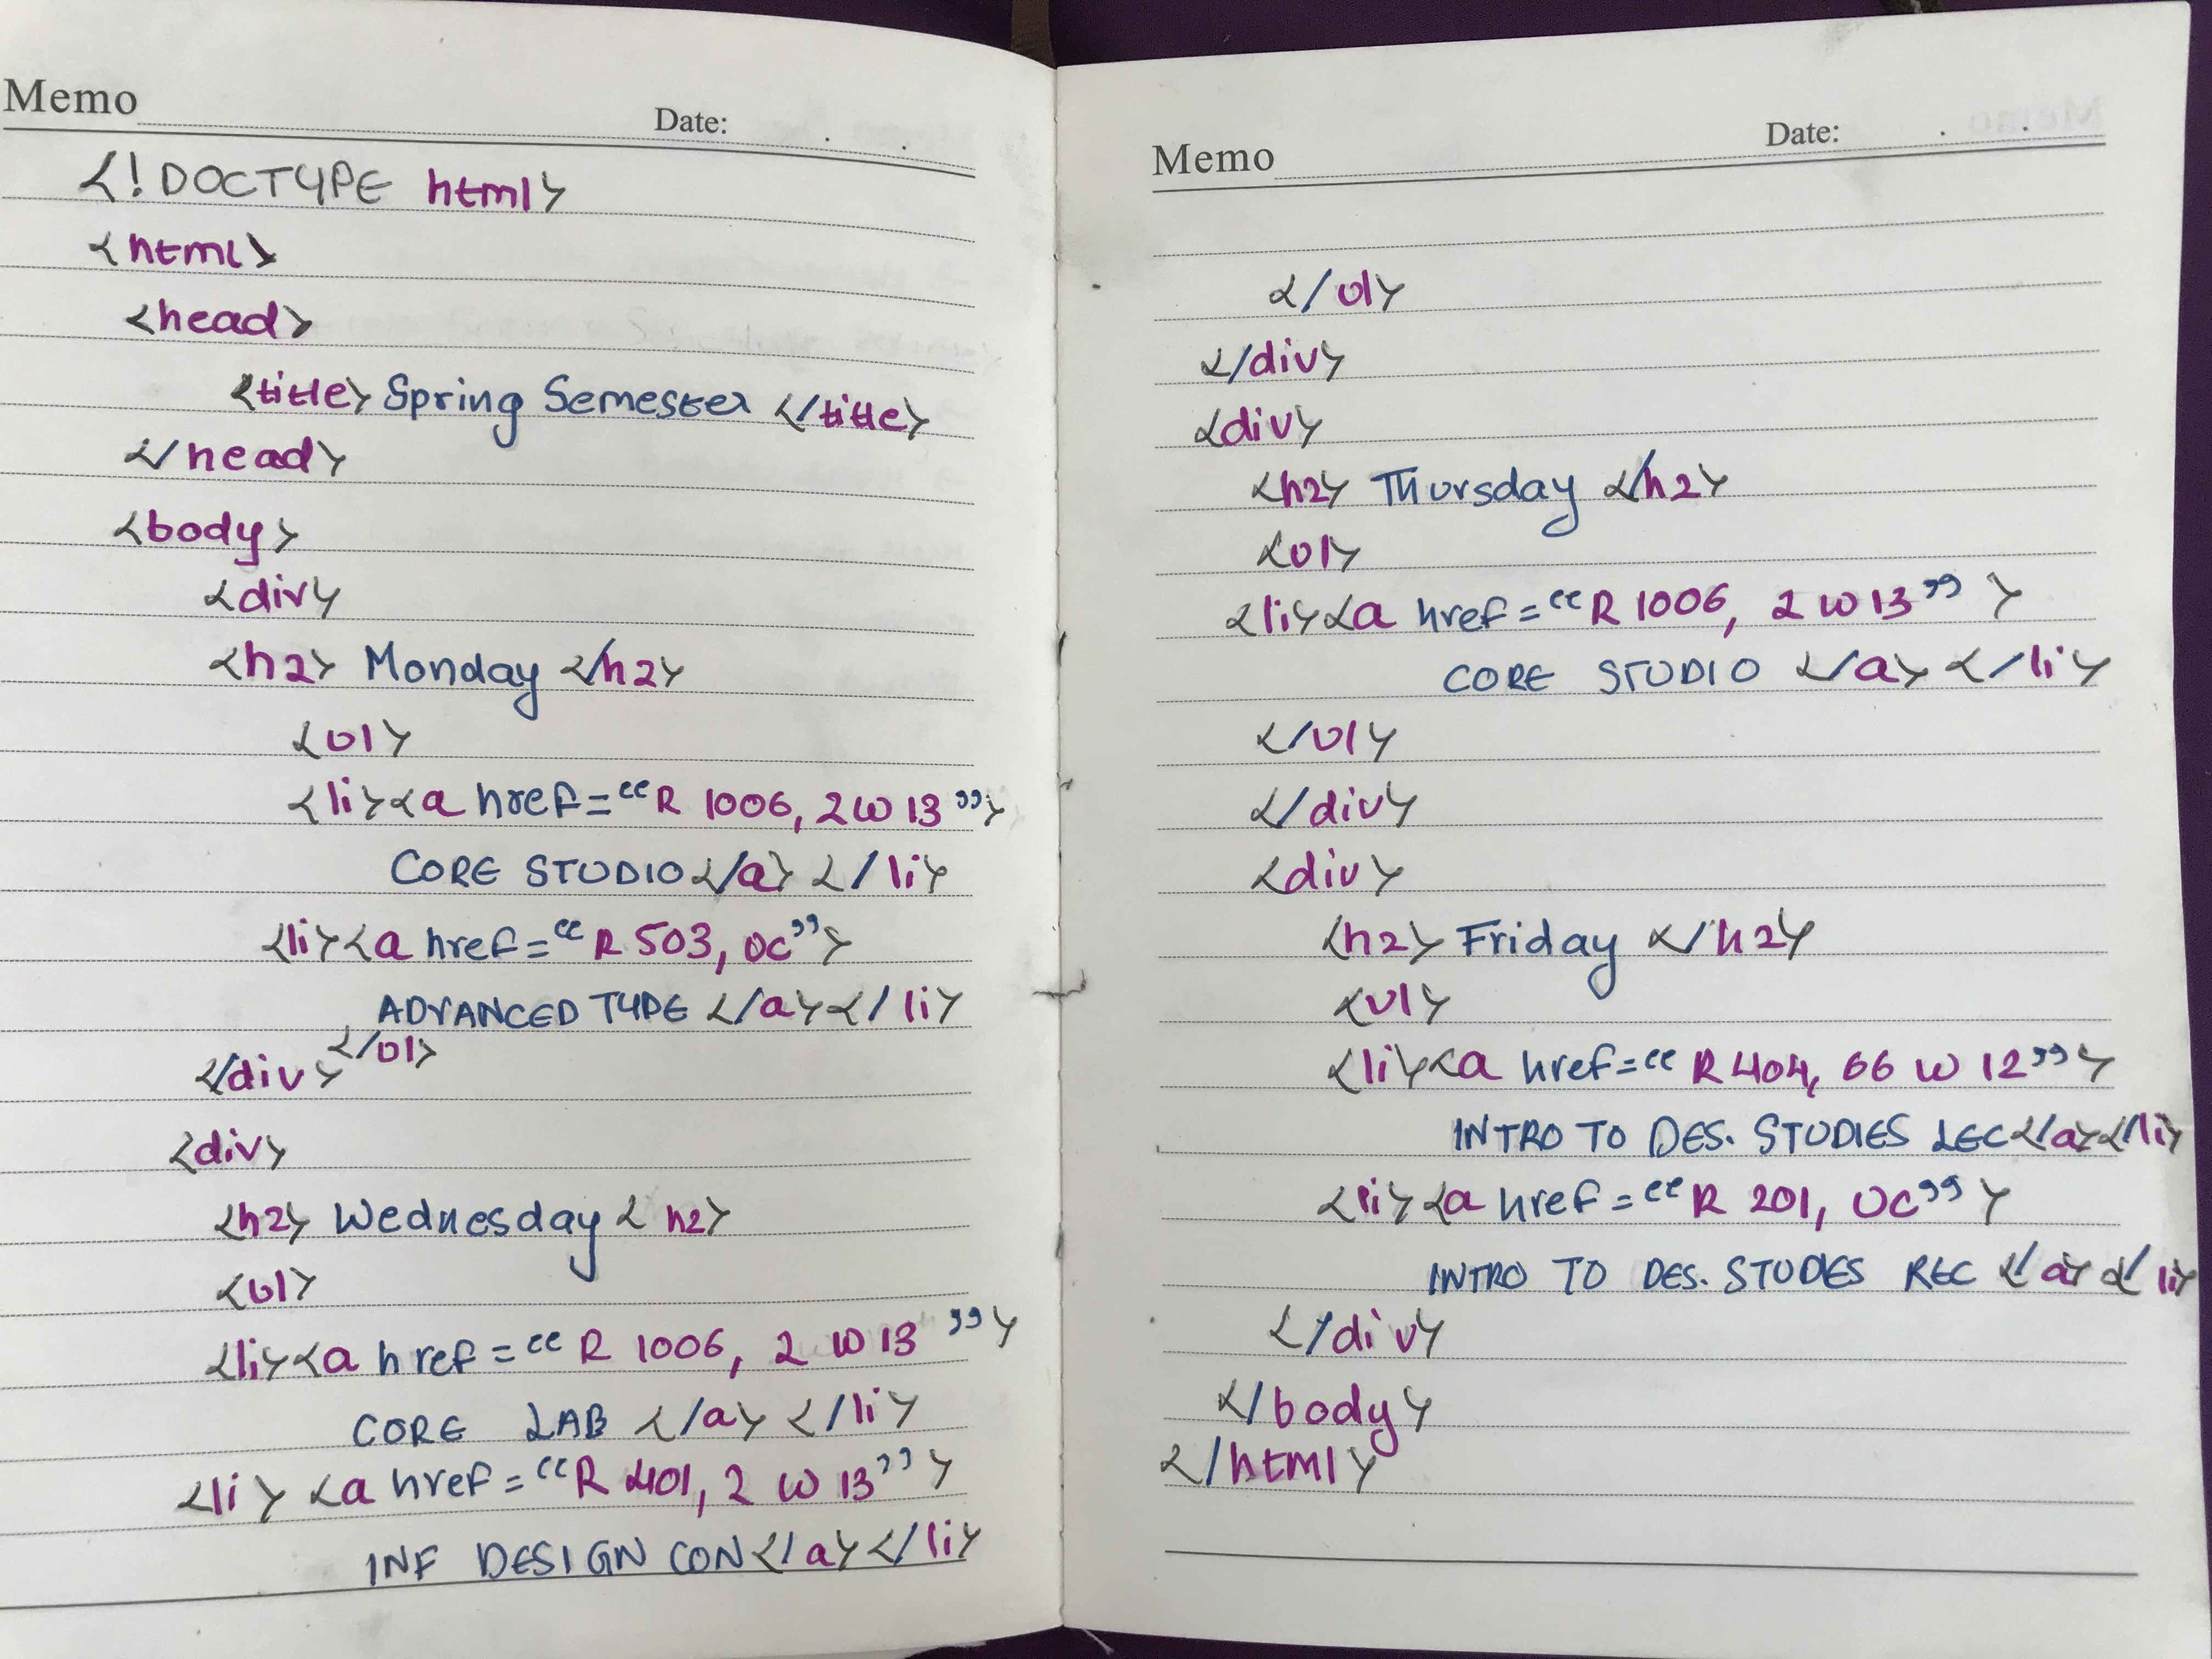 Memo
Date:
<!DOCTYPE html>
<html>
<head>
<title>Spring Semester </title>
</head>
<body>
<div>
<h2> Monday </h2>
<ol>
<li><a href="R 1006, 2W13">
CORE STUDIO</a> </li>
<li><a href="R 503, OC">
ADVANCED TYPE </a></li>
</ol>
</div>
<div>
<h2> Wednesday < h2>
<ol>
<li><a href="R 1006, 2 W 13">
CORE LAB </a> </li>
<li> <a href="R 401, 2 W 13">
INF DESIGN CON </a></li>
Memo
Date:
</ol>
</div>
<div>
<h2> Thursday </h2>
<ol>
<li><a href="R 1006, 2 W 13">
CORE STUDIO </a> </li>
</ol>
</div>
<div>
<h2> Friday </h2>
<ul>
<li><a href="R 404, 66 W 12">
INTRO TO DES. STUDIES LEC</a></li>
<li><a href="R 201, OC">
INTRO TO DES. STUDES REC </a></li>
</div>
</body>
</html>